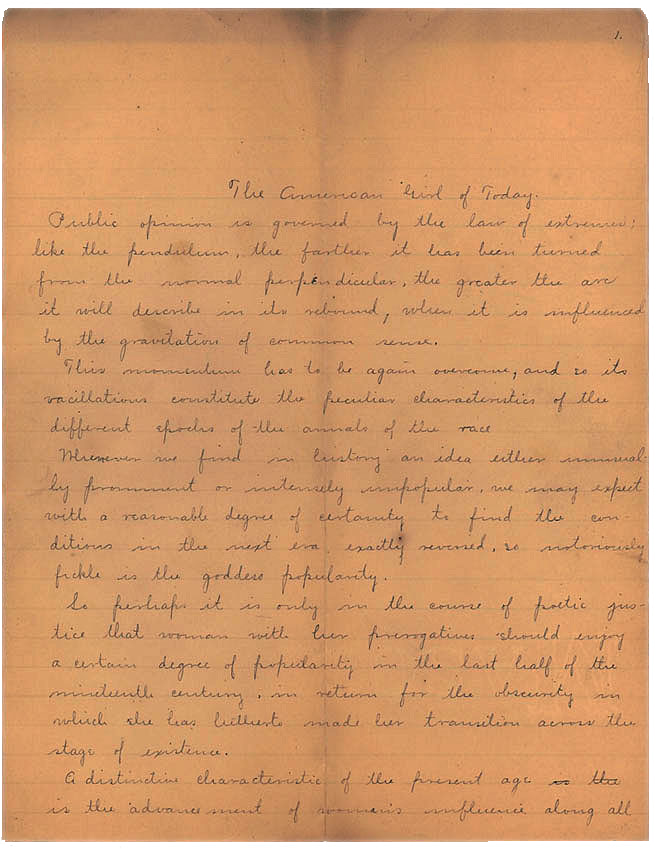 1.
The American Girl of Today.
Public opinion is governed by the law of extremes;
like the pendulum, the farther it has been turned
from the normal perpendicular, the greater the arc
it will describe in its rebound, when it is influenced
by the gravitation of common sense.
This momentum has to be again overcome, and so its
vacillations constitute the peculiar characteristics of the
different epochs of the annals of the race
Whenever we find in history an idea either unusual-
ly prominent or intensely unpopular, we may expect
with a reasonable degree of certainty to find the con-
ditions in the next era exactly reversed, so notoriously
fickle is the goddess popularity.
So perhaps it is only in the course of poetic jus-
tice that woman with her prerogatives should enjoy
a certain degree of popularity in the last half of the
nineteenth century, in return for the obscurity in
which she has hitherto made her transition across the
stage of existence.
A distinctive characteristic of the present age is the
is the advancement of women's influence along all